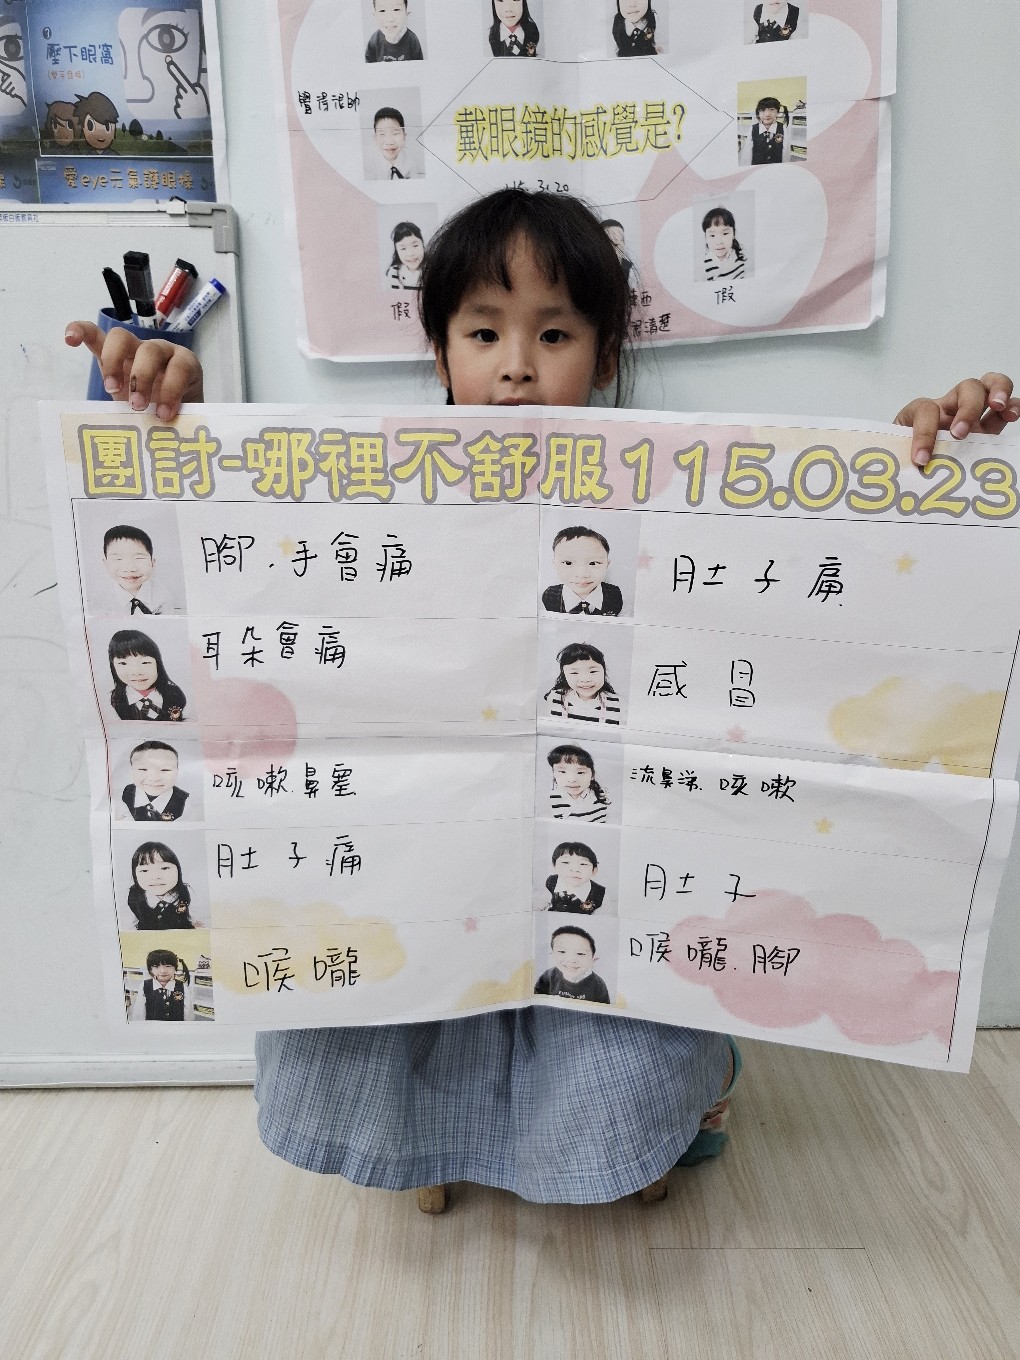 壓下眼窩
(雙手食指)
愛eye元氣護眼操
覺得很帥
戴眼鏡的感覺是?
115.3.20
假
假
清楚
團討-哪裡不舒服115.03.23
腳.手會痛
肚子痛
耳朵會痛
感冒
咳嗽.鼻塞
流鼻涕.咳嗽
肚子痛
肚子
喉嚨
喉嚨.腳